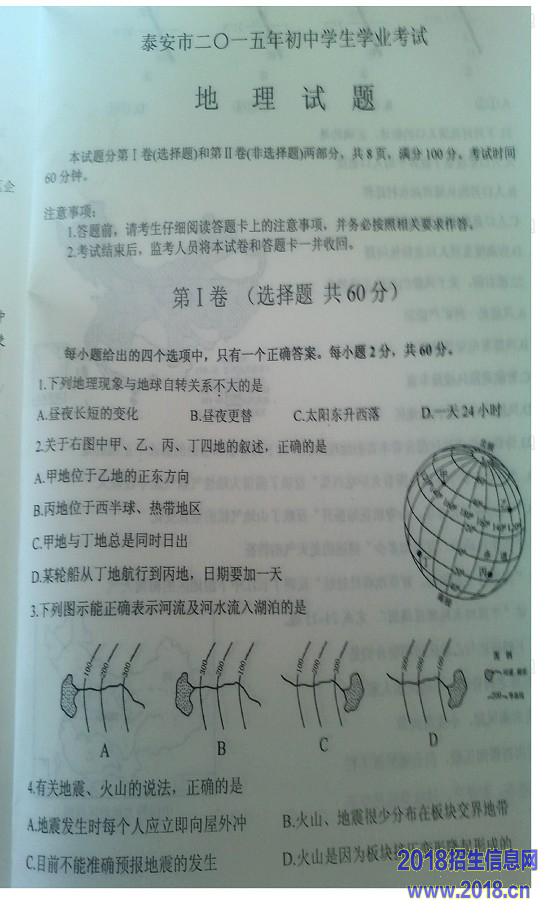 泰安市二〇一五年初中学生学业考试
地 理 试 题
本试题分第Ⅰ卷(选择题)和第Ⅱ卷(非选择题)两部分，共8页，满分100分，考试时间
60分钟。
注意事项：
1.答题前，请考生仔细阅读答题卡上的注意事项，并务必按照相关要求作答。
2.考试结束后，监考人员将本试卷和答题卡一并收回。
第Ⅰ卷 （选择题 共60分）
每小题给出的四个选项中，只有一个正确答案。每小题2分，共60分。
1.下列地理现象与地球自转关系不大的是
A.昼夜长短的变化 B.昼夜更替 C.太阳东升西落 D.一天24小时
2.关于右图中甲、乙、丙、丁四地的叙述，正确的是
A.甲地位于乙地的正东方向
B.丙地位于西半球、热带地区
C.甲地与丁地总是同时日出
D.某轮船从丁地航行到丙地，日期要加一天
3.下列图示能正确表示河流及河水流入湖泊的是
100 200 300
300 200 100
100 200 300
300 200 100
图 例
A B C D
4.有关地震、火山的说法，正确的是
A.地震发生时每个人应立即向屋外冲 B.火山、地震很少分布在板块交界地带
C.目前不能准确预报地震的发生 D.火山是因为板块挤压变形隆起形成的
2018招生信息网
www.2018.cn